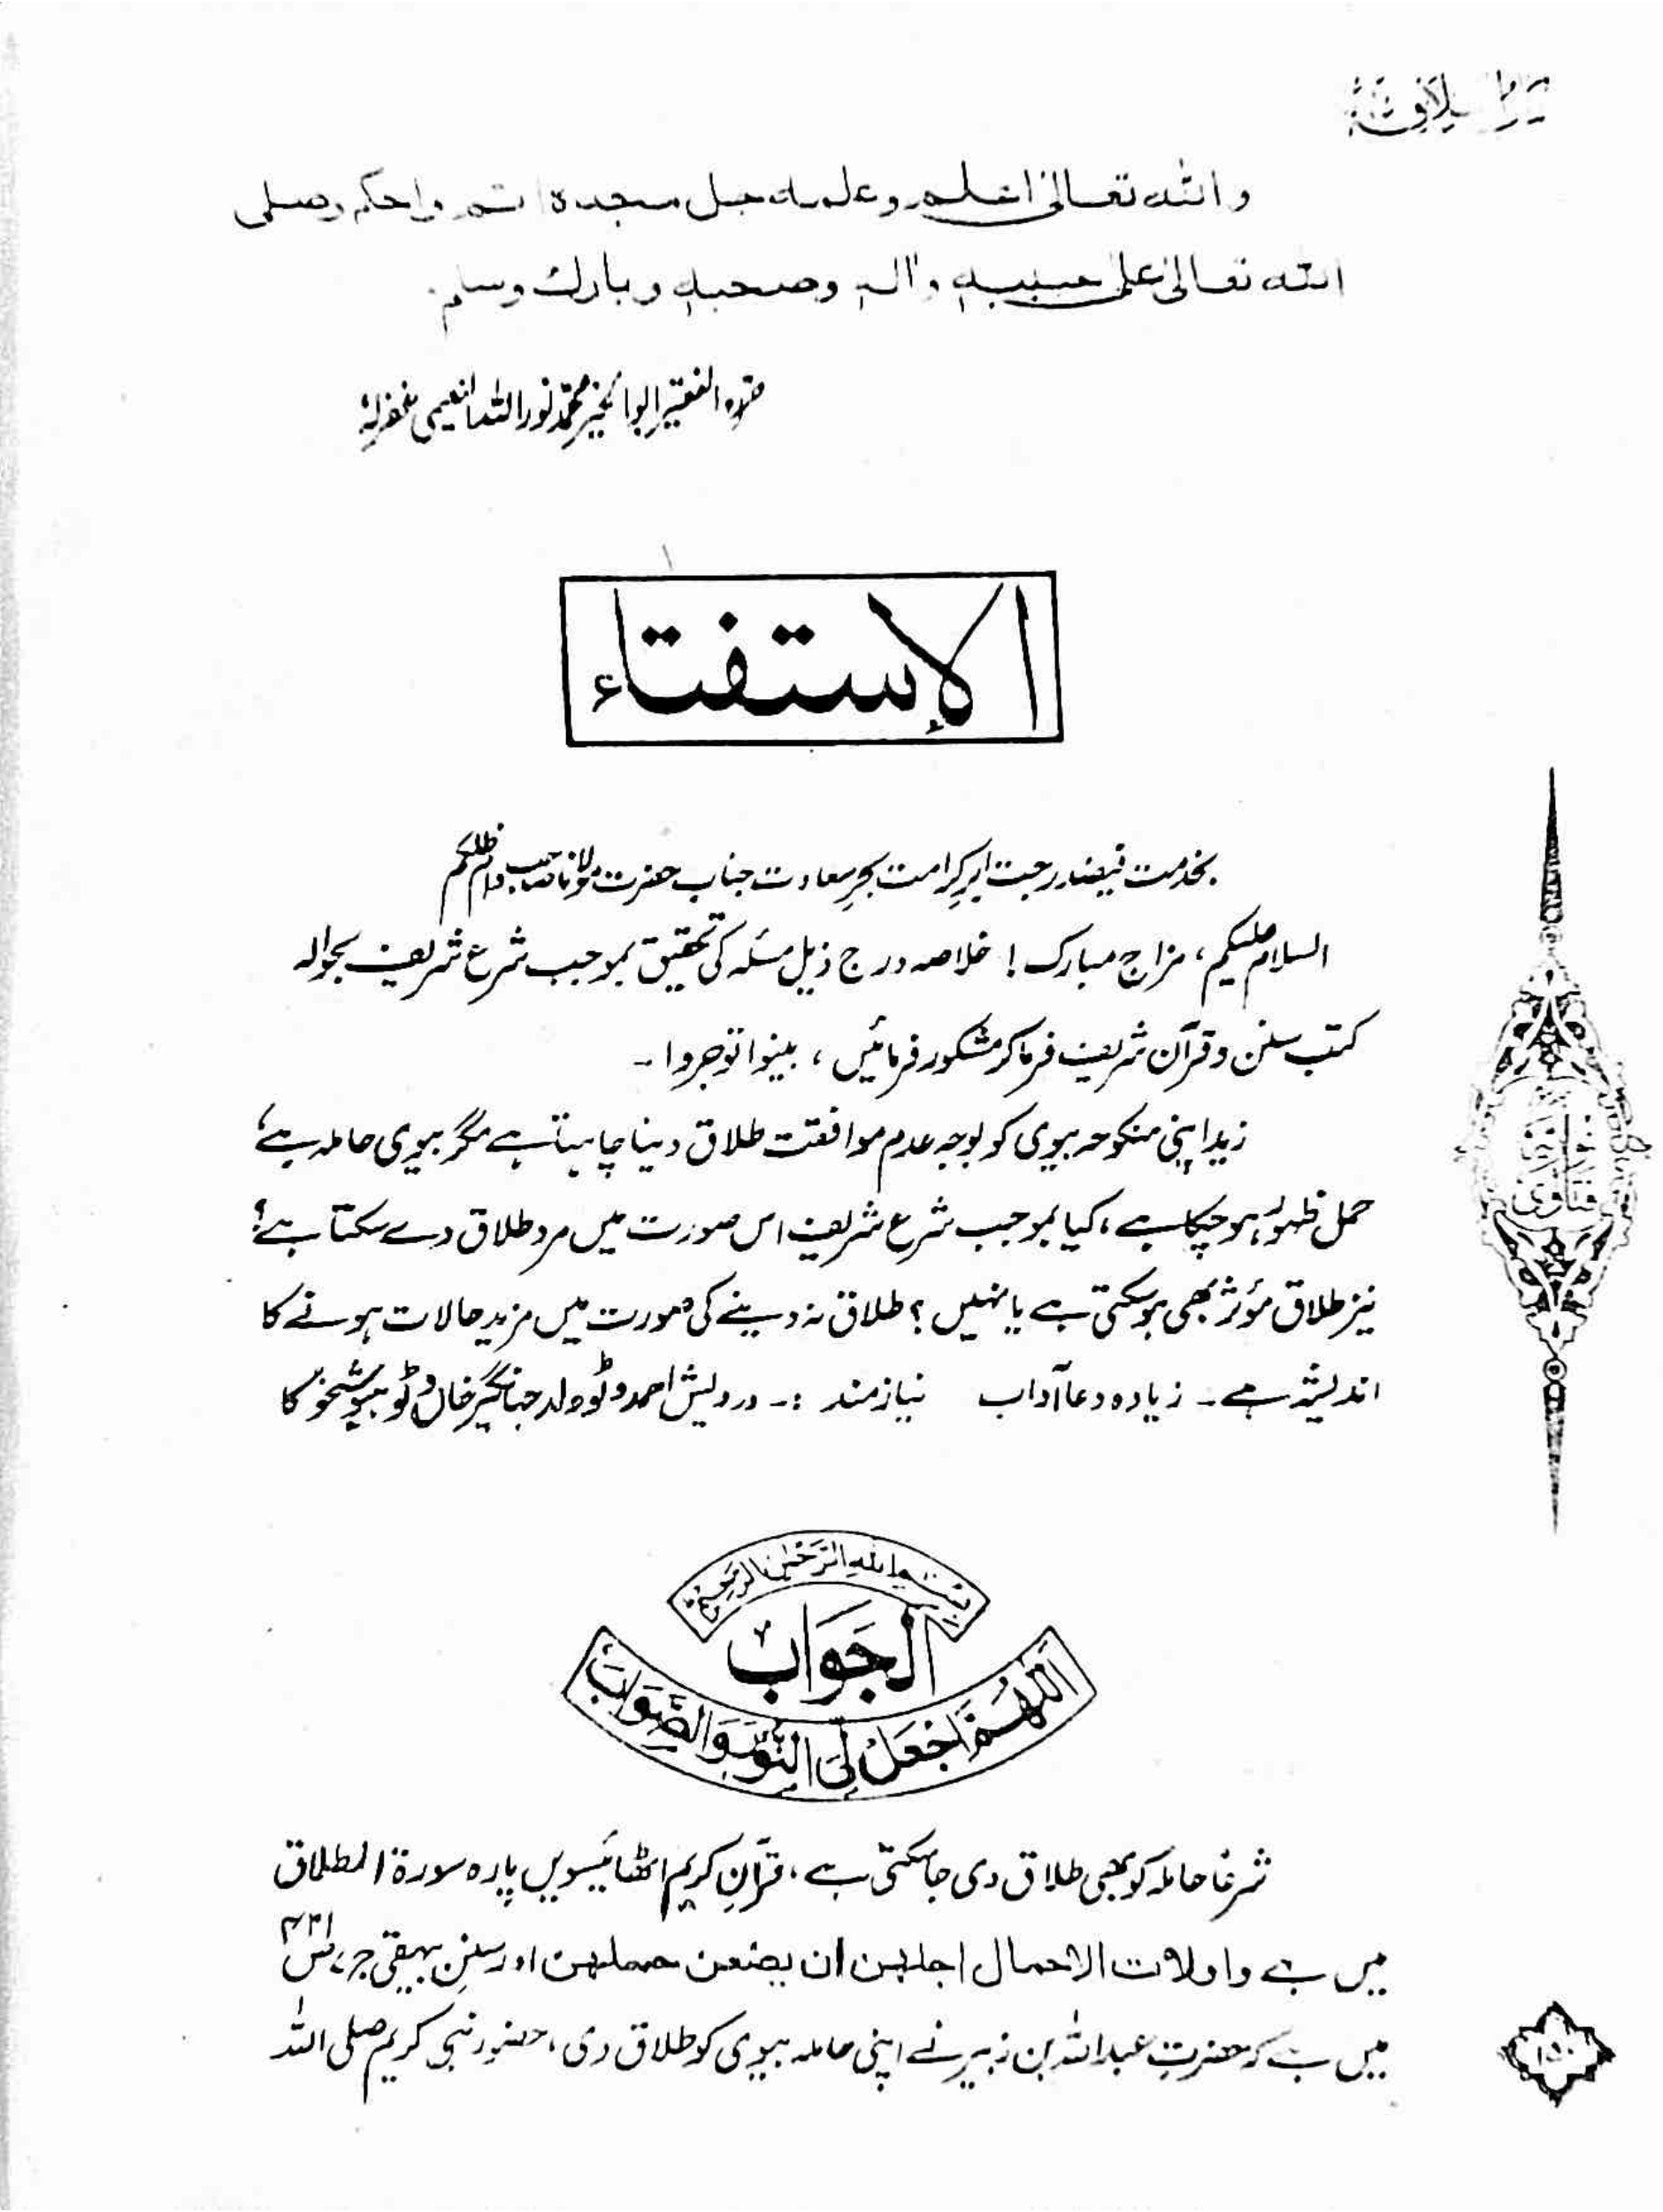 کتاب الطلاق
والله تعالیٰ اعلم وعلمہ جل مجدہ اتم واحکم وصلی
الله تعالیٰ علی حبیبہ والہ وصحبہ وبارك وسلم
حرره الفقیر ابو الخیر محمد نور اللہ النعیمی غفرلہ
الإستفتاء
بخدمت فیضدرجت ابرِ کرامت بحرِ سعادت جناب حضرت مولانا صاحب دام ظلکم
السلام علیکم، مزاج مبارک! خلاصہ درج ذیل مسئلہ کی تحقیق بموجب شرع شریف بحوالہ
کتب سنن و قرآن شریف فرما کر مشکور فرمائیں، بینوا توجروا۔
زید اپنی منکوحہ بیوی کو بوجہ عدم موافقت طلاق دینا چاہتا ہے مگر بیوی حاملہ ہے،
حمل ظہور ہو چکا ہے، کیا بموجب شرع شریف اس صورت میں مرد طلاق دے سکتا ہے؟
نیز طلاق مؤثر بھی ہو سکتی ہے یا نہیں؟ طلاق نہ دینے کی صورت میں مزید حالات ہونے کا
اندیشہ ہے۔ زیادہ دعا آداب نیازمند :۔ درویش احمد وٹو ولد جہانگیر خاں وٹو
فتاویٰ نوریہ
بسم الله الرحمٰن الرحیم
الجَوَابُ
اللّٰهُمَّ اجْعَلْ لِیَ النُّوْرَ وَالصَّوَابَ
شرعًا حاملہ کو بھی طلاق دی جا سکتی ہے، قرآنِ کریم اٹھائیسویں پارہ سورۃ الطلاق
میں ہے واولات الاحمال اجلہن ان یضعن حملہن اور سننِ بیہقی
میں ہے کہ حضرتِ عبداللہ بن زبیر نے اپنی حاملہ بیوی کو طلاق دی، حضور نبی کریم صلی اللہ
۱۵۰